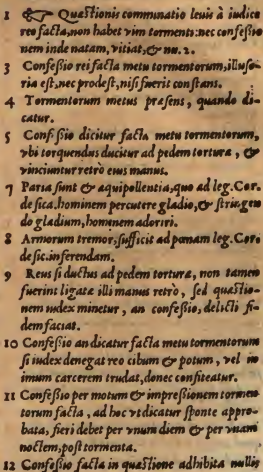 1 ☞ Quæstionis communatio leuis à iudice
reo facta, non habet vim tormenti: nec confessio
nem inde natam, vitiat, & nu. 2.
3 Confessio rei facta metu tormentorum, illuso-
ria est, nec prodest, nisi fuerit constans.
4 Tormentorum metus præsens, quando di-
catur.
5 Confessio dicitur facta metu tormentorum,
vbi torquendus ducitur ad pedem torturæ, &
vinciuntur retrò eius manus.
7 Paria sunt & æquipollentia, quo ad leg. Cor.
de sica. hominem percutere gladio, & stringen
do gladium, hominem adoriri.
8 Armorum tremor, sufficit ad pœnam leg. Cor.
de sic. inferendam.
9 Reus si ductus ad pedem torturæ, non tamen
fuerint ligatæ illi manus retrò, sed quæstio-
nem iudex minetur, an confessio, delicti fi-
dem faciat.
10 Confessio an dicatur facta metu tormentorum
si iudex denegat reo cibum & potum, vel in
imum carcerem trudat, donec confiteatur.
11 Confessio per motum & impressionem tormen-
torum facta, ad hoc vt dicatur sponte appro-
bata, fieri debet per vnum diem & per vnam
noctem, post tormenta.
12 Confessio facta in quæstione adhibita nullis